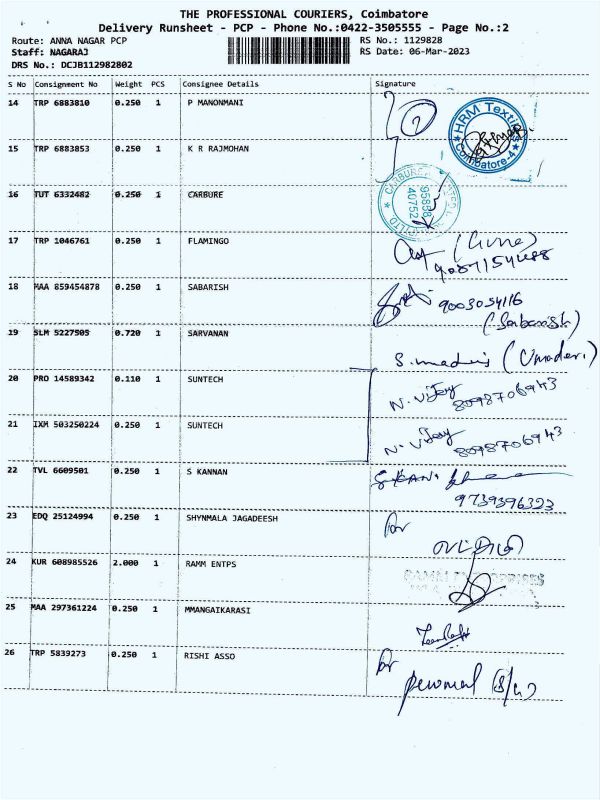 THE PROFESSIONAL COURIERS, Coimbatore
Delivery Runsheet - PCP - Phone No.:0422-3505555 - Page No.:2
Route: ANNA NAGAR PCP
RS No.: 1129828
Staff: NAGARAJ
RS Date: 06-Mar-2023
DRS No.: DCJB112982802
S No Consignment No Weight PCS Consignee Details Signature
14 TRP 6883810 0.250 1 P MANONMANI
HRM Textiles
Coimbatore-4
15 TRP 6883853 0.250 1 K R RAJMOHAN
16 TUT 6332482 0.250 1 CARBURE
95888
40752
17 TRP 1046761 0.250 1 FLAMINGO
18 MAA 859454878 0.250 1 SABARISH
9003054116
(Sabarish)
19 SLM 5227505 0.720 1 SARVANAN
20 PRO 14589342 0.110 1 SUNTECH
N. Vijay 8098706943
21 IXM 503250224 0.250 1 SUNTECH
N. Vijay 8098706943
22 TVL 6609501 0.250 1 S KANNAN
9739396323
23 EDQ 25124994 0.250 1 SHYNMALA JAGADEESH
for
24 KUR 608985526 2.000 1 RAMM ENTPS
25 MAA 297361224 0.250 1 MMANGAIKARASI
26 TRP 5839273 0.250 1 RISHI ASSO
for
perumal